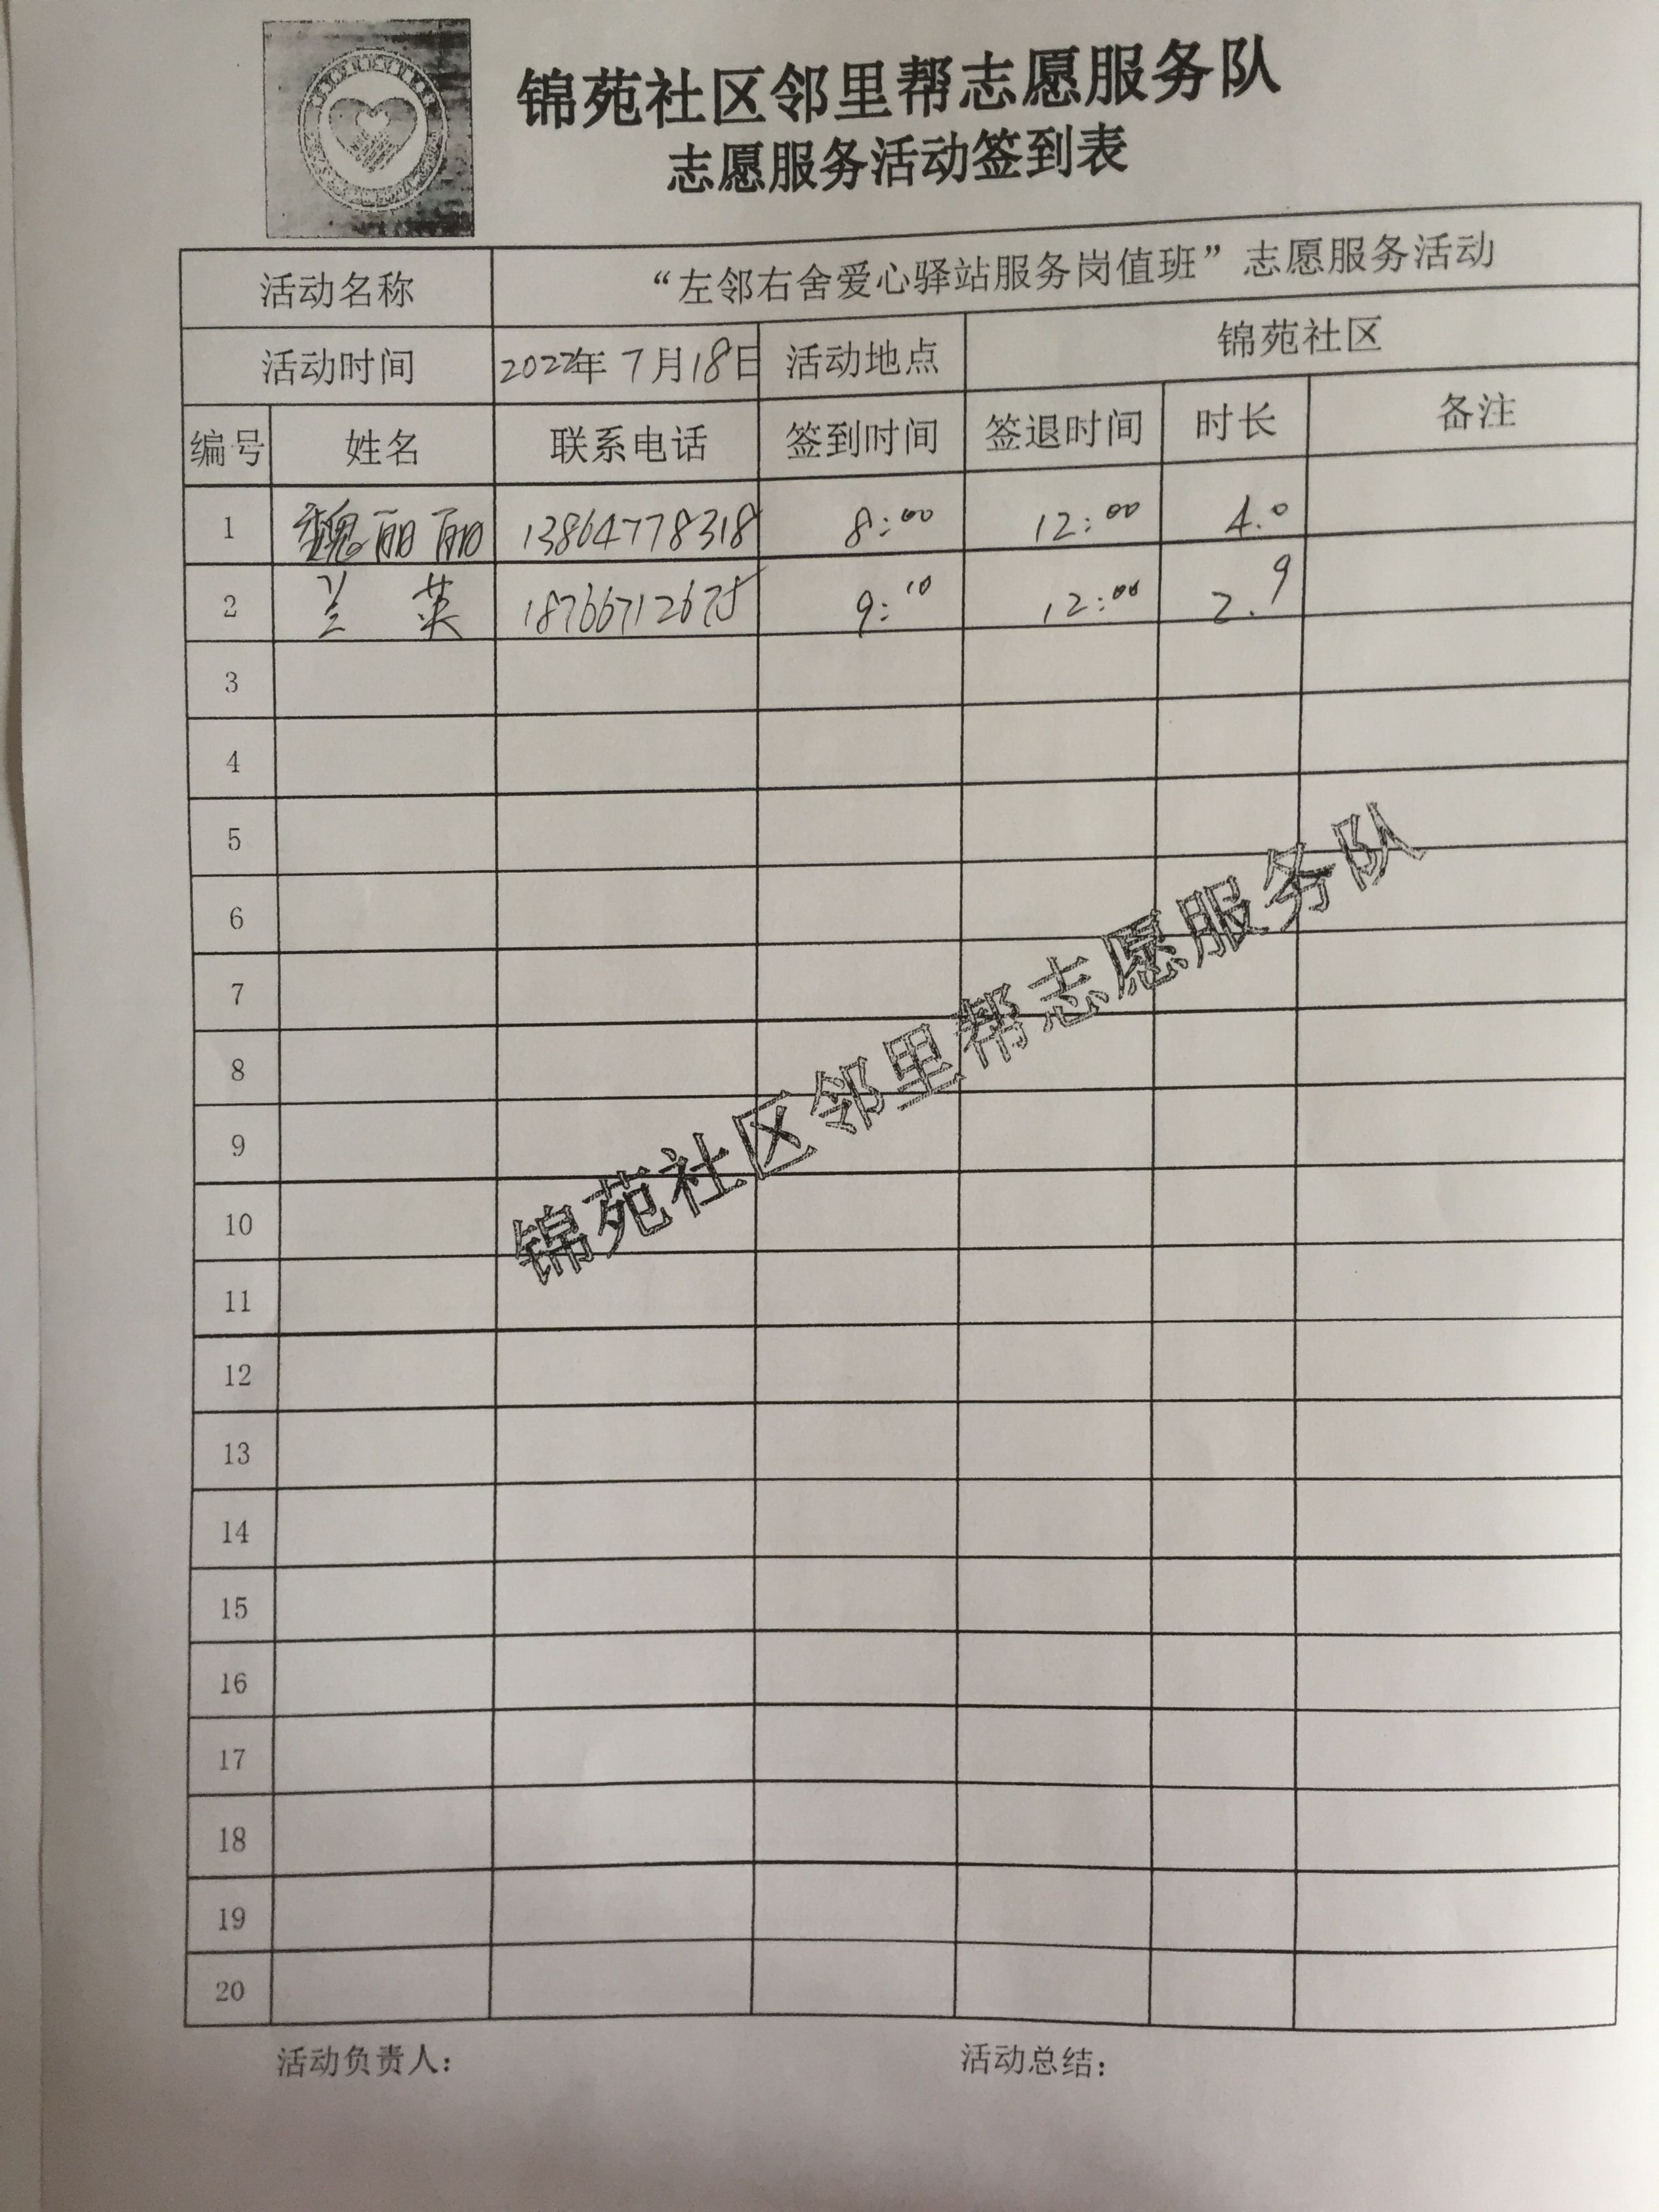 锦苑社区邻里帮志愿服务队
志愿服务活动签到表
活动名称 “左邻右舍爱心驿站服务岗值班”志愿服务活动
活动时间 2022年7月18日 活动地点 锦苑社区
编号 姓名 联系电话 签到时间 签退时间 时长 备注
1 魏丽丽 13864778318 8:00 12:00 4.0
2 兰英 18766712675 9:10 12:00 2.9
3
4
5
6
7
8
9
10
11
12
13
14
15
16
17
18
19
20
锦苑社区邻里帮志愿服务队
活动负责人: 活动总结: